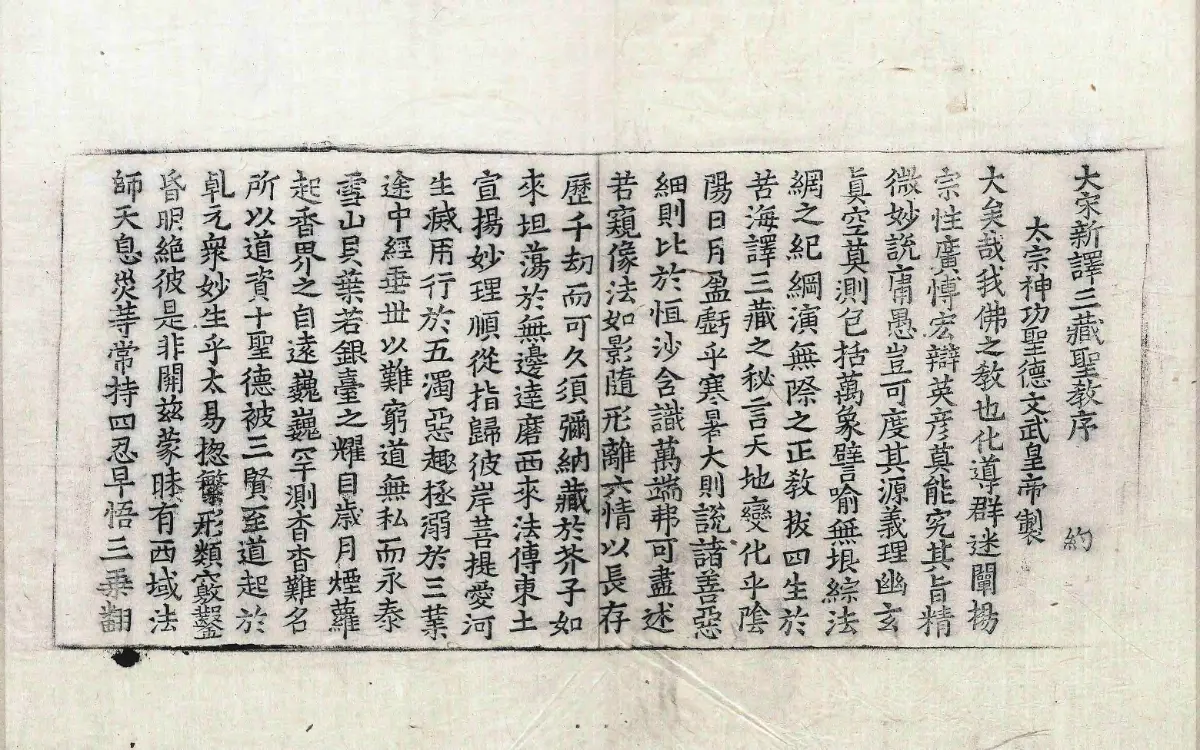 大宋新譯三藏聖教序 約
太宗神功聖德文武皇帝製
大矣哉我佛之教也化導群迷闡揚
宗性廣博宏辯英彥莫能究其旨精
微妙說庸愚豈可度其源義理幽玄
眞空莫測包括萬象譬喻無垠綜法
網之紀綱演無際之正教拔四生於
苦海譯三藏之秘言天地變化乎陰
陽日月盈虧乎寒暑大則說諸善惡
細則比於恒沙含識萬端弗可盡述
若窺像法如影隨形離六情以長存
歷千劫而可久須彌納藏於芥子如
來坦蕩於無邊達磨西來法傳東土
宣揚妙理順從指歸彼岸菩提愛河
生滅用行於五濁惡趣拯溺於三業
途中經垂世以難窮道無私而永泰
雪山貝葉若銀臺之耀目歲月煙蘿
起香界之自遠巍巍罕測杳杳難名
所以道資十聖德被三賢至道起於
乹元衆妙生乎太易揔繁形類竅鑿
昏明絶彼是非開茲蒙昧有西域法
師天息災等常持四忍早悟三乗翻